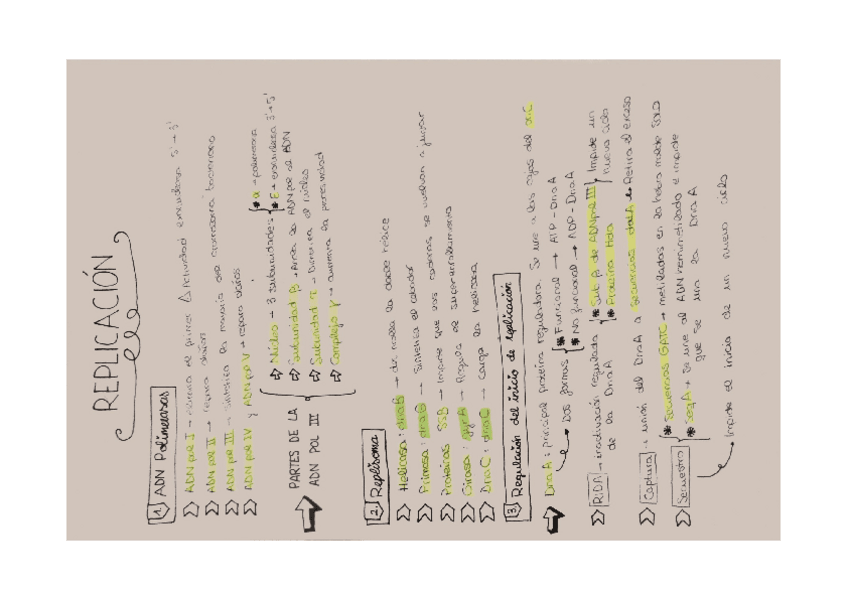 REPLICACIÓN
1. ADN Polimerasas
ADN pol I → elimina el primer Actividad exnucleasa 5' → 3'
ADN pol II → repara daños
ADN pol III → sintetiza la mayoría del cromosoma bacteriano
ADN pol IV y ADN pol V → repara daños
PARTES DE LA ADN POL III
Núcleo → 3 subunidades:
* α → polimerasa
* ε → exnucleasa 3' → 5'
Subunidad β → Ancla la ADN pol al ADN
Subunidad τ → Dimeriza el núcleo
Complejo γ → aumenta la procesividad
2. Replisoma
Helicasa: dnaB → desenrolla la doble hélice
Primasa: dnaG → Sintetiza el cebador
Proteínas SSB → Impide que las cadenas se vuelvan a juntar
Girasa: gyrA → Regula el superenrollamiento
DnaC: dnaC → carga la helicasa
3. Regulación del inicio de replicación
DnaA: principal proteína reguladora. Se une a las cajas del oriC
Dos formas
* Funcional → ATP - DnaA
* No funcional → ADP - DnaA
RIDA → inactivación regulada de la DnaA
* Sub β de ADN pol III
* Proteína Hda
Impide un nuevo ciclo
Captura: unión del DnaA a Secuencias datA → Retira el exceso
Secuestro
* Secuencias GATC → metiladas en la hebra molde SOLO
* SeqA → Se une al ADN hemimetilado e impide
que se una la DnaA
Impide el inicio de un nuevo ciclo